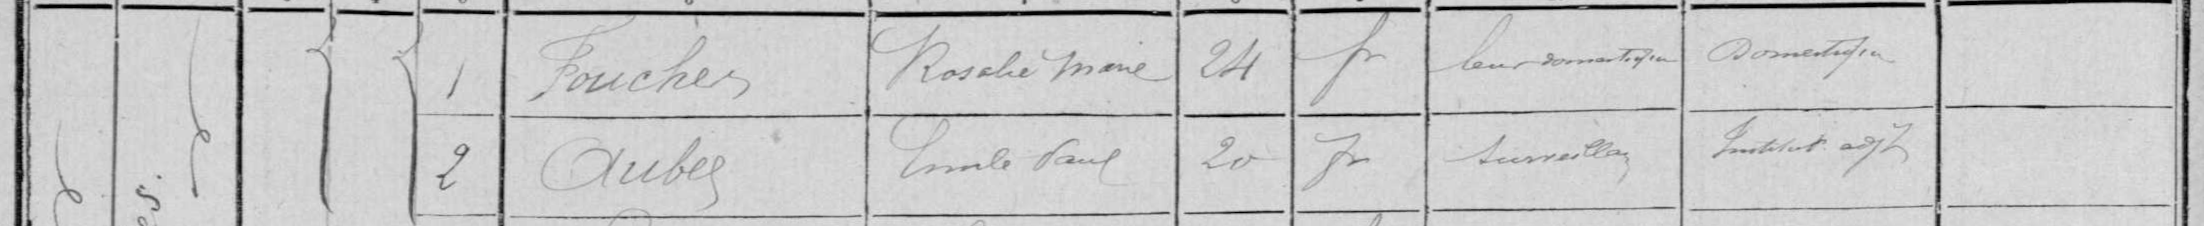 1 Foucher Rosalie Marie 24 fr leur domestique Domestique
2 Auber Emile Paul 20 fr Surveillant Institut. adjt
es.